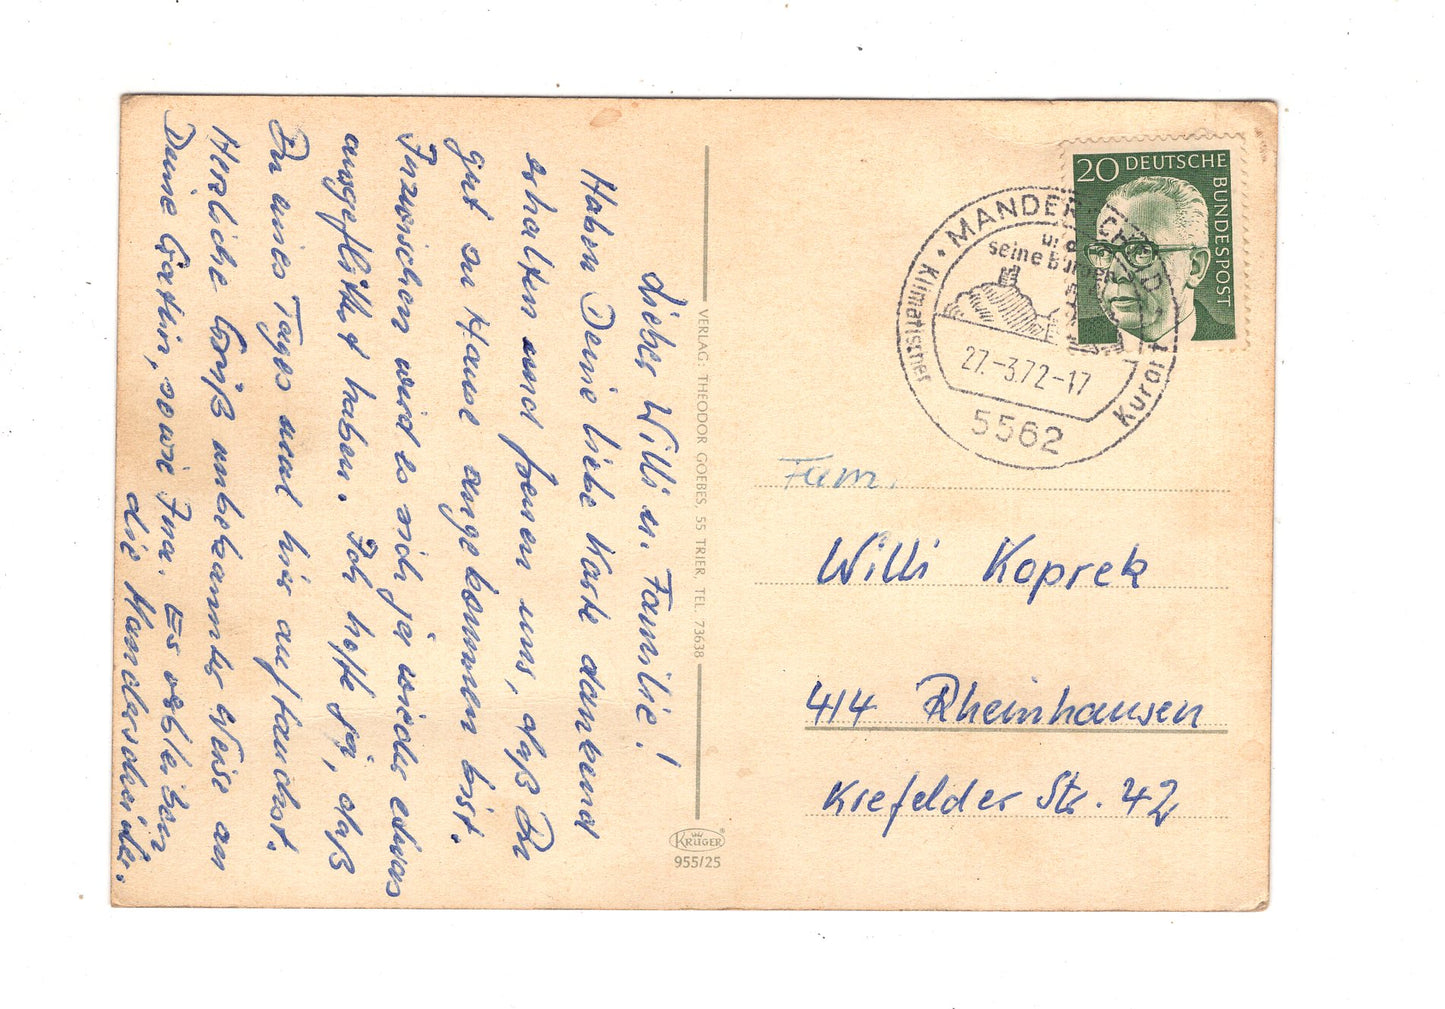 Lieber Willi u. Familie!
Haben Deine liebe Karte dankend
erhalten und freuen uns, daß Du
gut zu Hause angekommen bist.
Inzwischen wird es sich ja wieder etwas
ausgeflittet haben. Ich hoffe ja, daß
Du eines Tages mal hier auftauchst.
Herzliche Grüß unbekannter Weise an
Deine Gattin, sowie Ina. Es verbleiben
die Manderscheider.
VERLAG: THEODOR GOEBES, 55 TRIER, TEL. 73638
KRÜGER
955/25
20 DEUTSCHE
BUNDESPOST
MANDERSCHEID
und
seine burgen
Klimatischer
Kurort
27.-3.72-17
5562
Fam.
Willi Koprek
414 Rheinhausen
Krefelder Str. 42